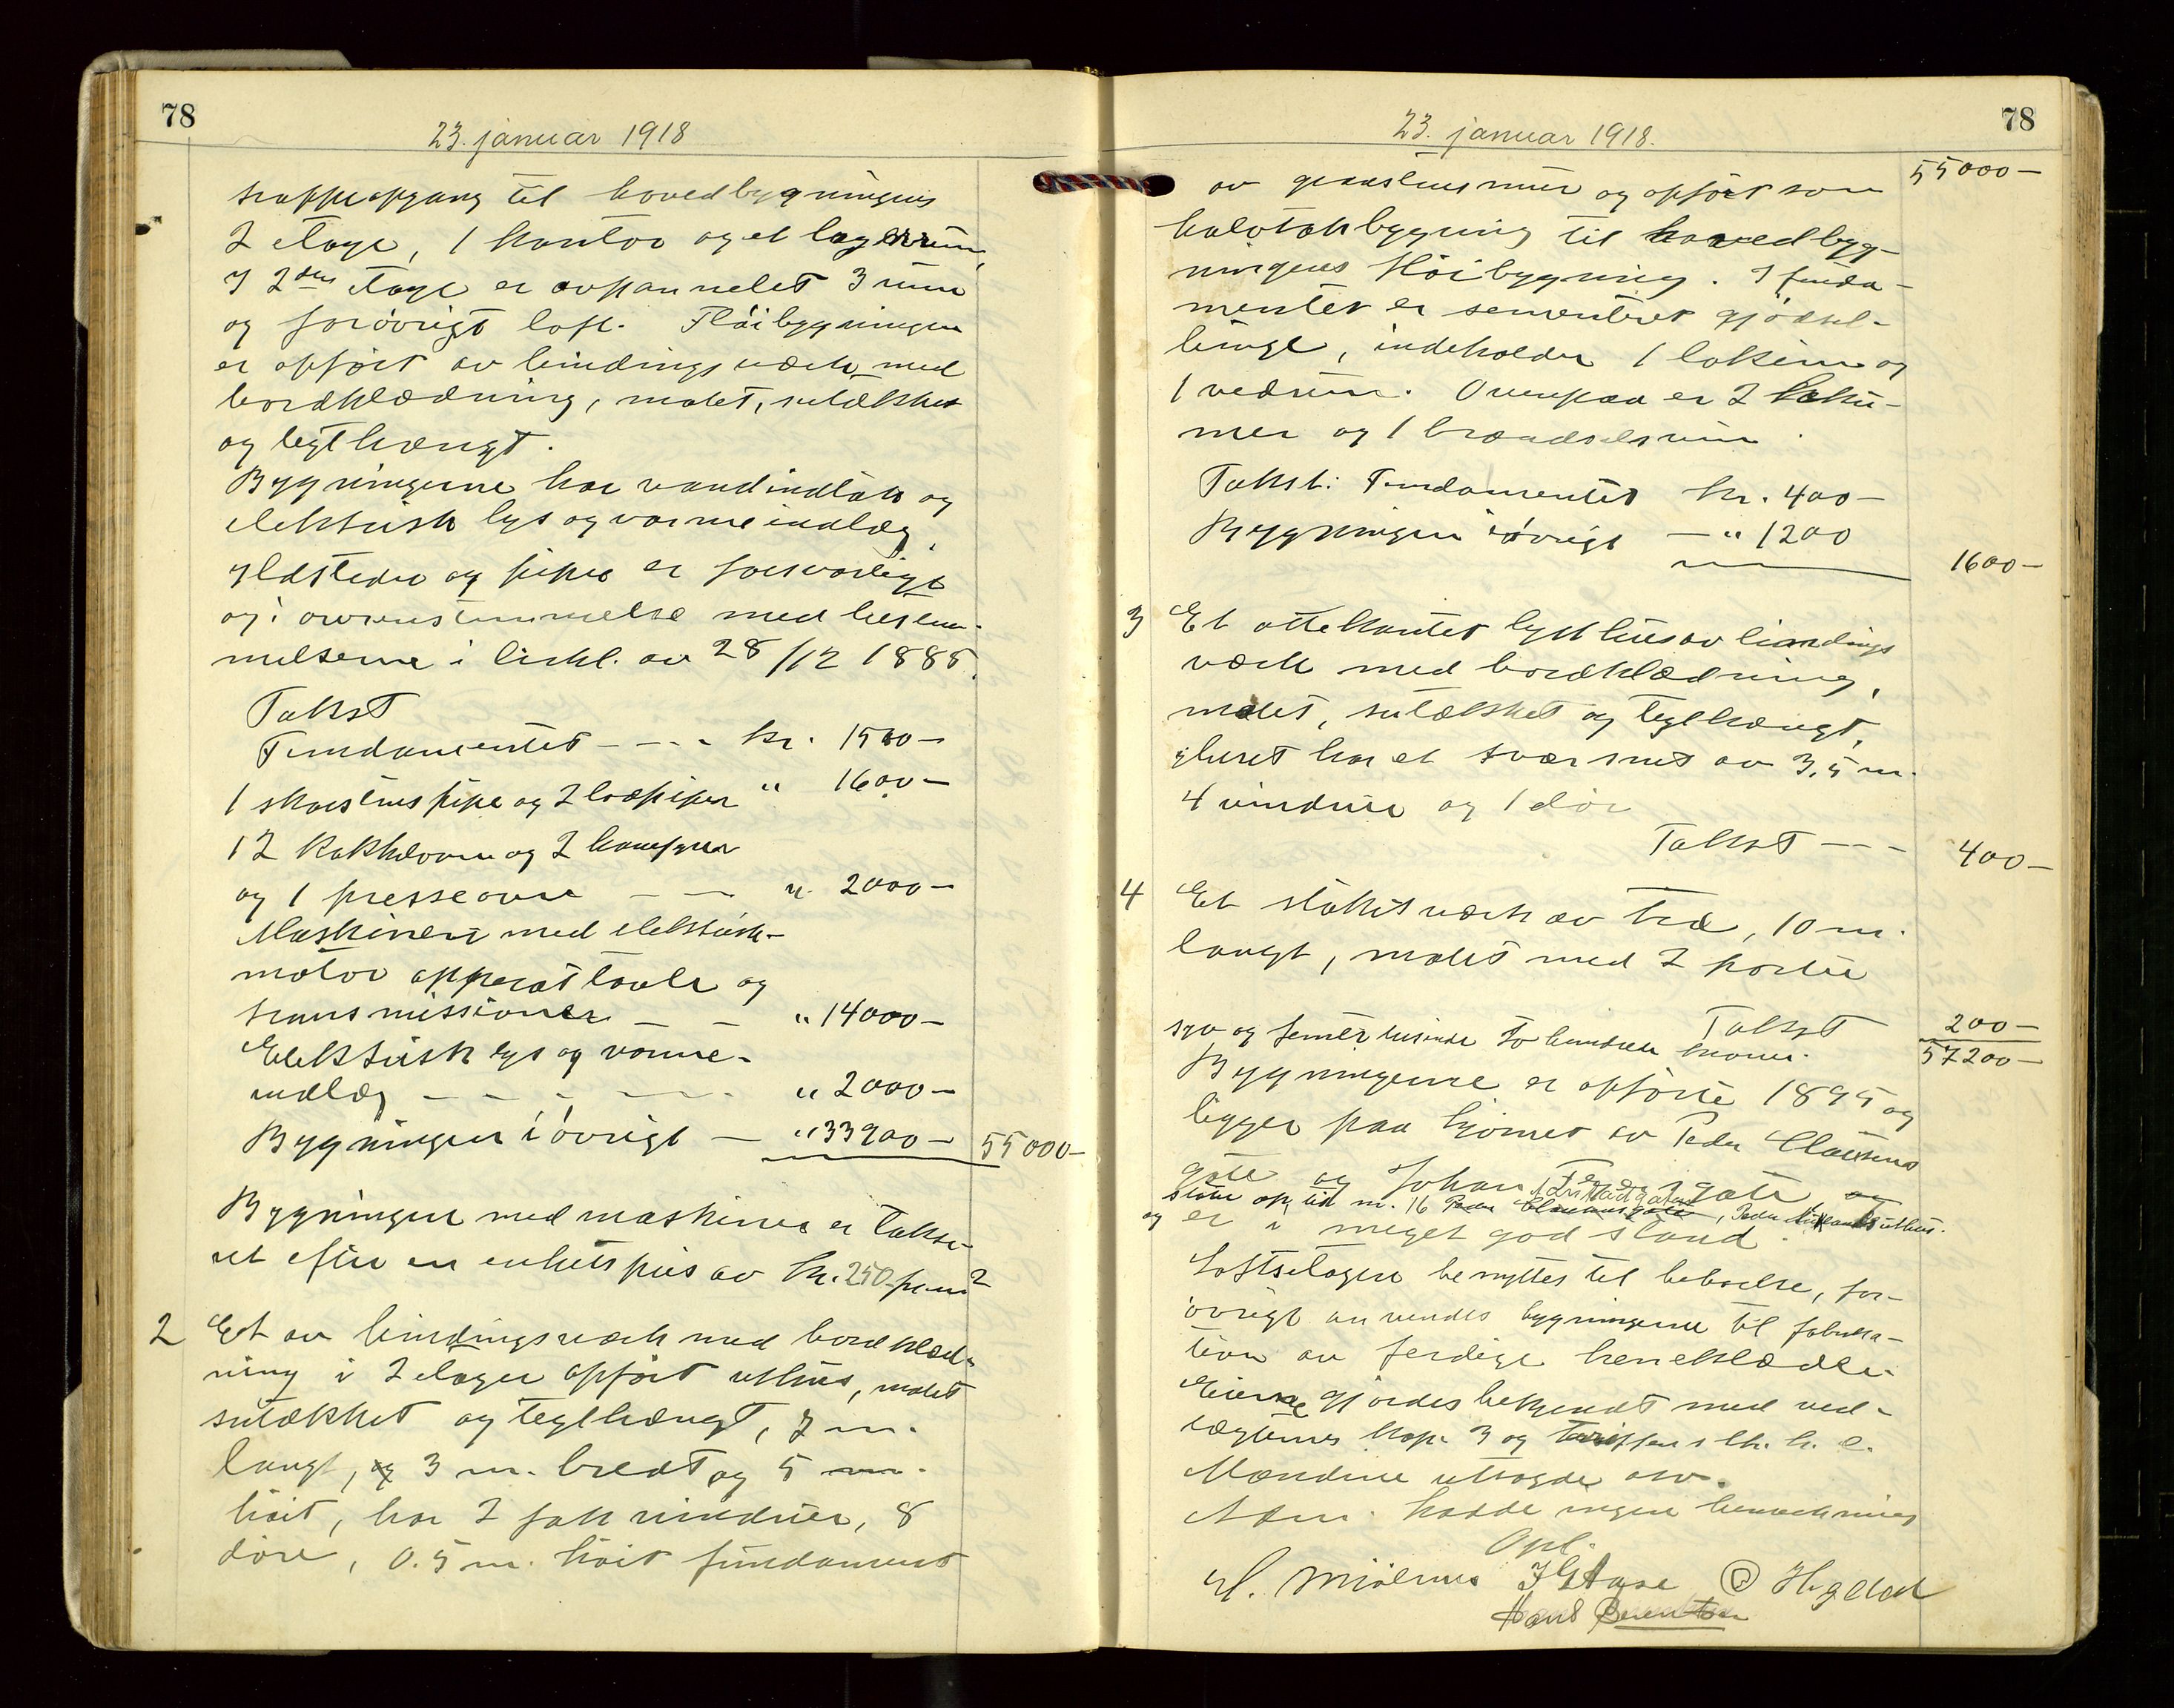 78
23. januar 1918
trappeopgang til hovedbygningens
2 etage, 1 kontor og et lagerrum,
I 2den etage er avpannelet 3 rum
og forøvrigt loft. Fløibygningen
er opført av bindingsværk med
bordklædning, malet, sutækket
og teglhængt.
Bygningerne har vandindtak og
elektrisk lys og varmeindlæg,
Ildsteder og piper er forsvarlige
og i overensstemmelse med bestem-
melserne i cirkl. av 28/12 1888.
Takst
Fundamentet - - - - kr. 1500 -
1 skorstenspipe og 2 " 1600 -
12 kakkelovne og 2 komfyrer
og 1 presseovn — — " 2000 -
Maskineri med elektrisk-
motor apparattavle og
transmissioner — — " 14000 -
Elektrisk lys og varme-
indlæg - - - - - " 2000 -
Bygningen iøvrigt — " 33900 - 55000 -
Bygningen med maskiner er takse-
ret efter en enhetspris av kr. 250 - pr. m2
2 Et av bindingsværk med bordklæd-
ning i 2 etager opført uthus, malet
sutækket og teglhængt, 7 m.
langt, og 3 m. bredt og 5 m.
høit, har 2 fak vinduer, 8
døre, 0.5 m. høit fundament
78
23. januar 1918.
55000 -
av graastensmur og opført som
halvtakbygning til hovedbyg-
ningens fløibygning. I funda-
mentet er sementeret gjødsel-
binge, indeholder 1 lokum og
1 vedrum. Ovenpaa er 2 loku-
mer og 1 brændselsrum.
Takst: Fundamentet kr. 400 -
Bygningen iøvrigt — " 1200
1600 -
3 Et ottekantet lysthus av bindings
værk med bordklædning,
malet, sutækket og teglhængt,
huset har et tversnit av 3,5 m.
4 vinduer og 1 dør
Takst - - - 400 -
4 Et stakitværk av træ, 10 m.
langt, malet med 2 porter
Takst 200 -
syv og femti tusinde to hundrede kroner. 57200 -
Bygningerne er opførte 1895 og
ligger paa hjørnet av Peder Clausens
gate og Johan gate og
støter op til nr. 16 Peder Clausensgate, Peder uthus.
og er i meget god stand.
Loftsetagen benyttes til beboelse, for-
øvrigt anvendes bygningerne til fabrika-
tion av ferdige herreklæder.
Eierne gjordes bekjendt med ved-
tægternes kap. 3 og tariffen s
Mændene utsagde osv.
Adm. hadde ingen bemerkning
Opl.
H. Mjølhus I G Aase
Hans Berentsen